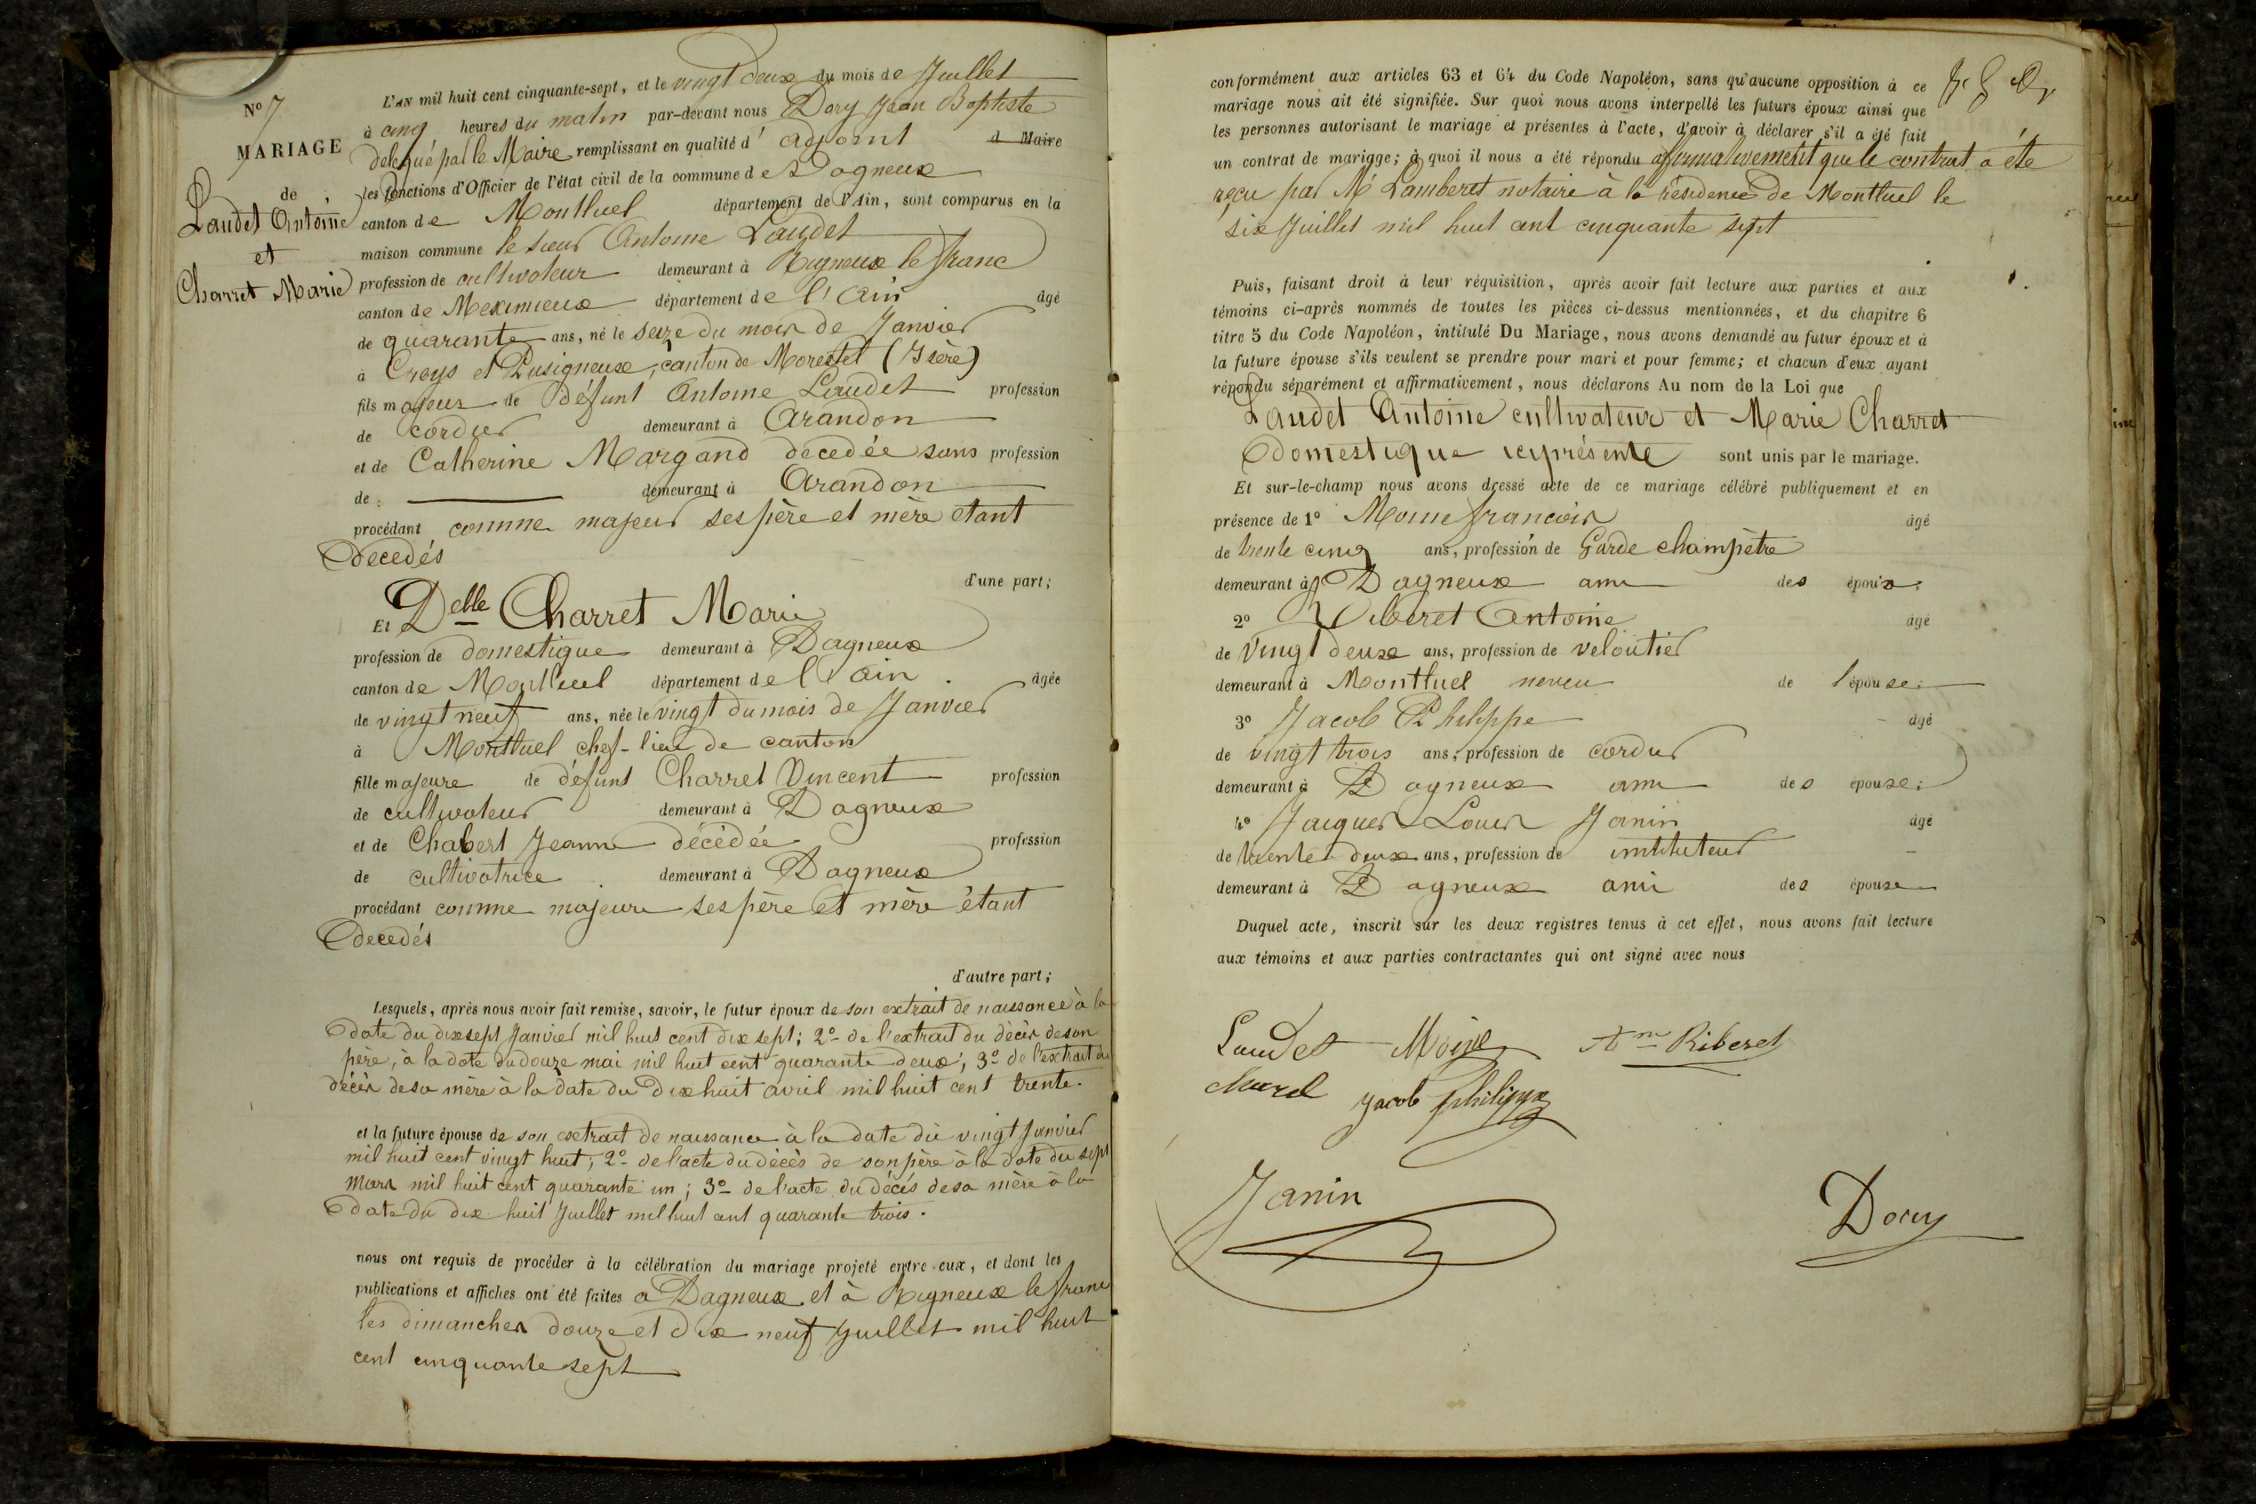 N° 7
MARIAGE
de
Laudet Antoine
et
Charret Marie
L'AN mil huit cent cinquante-sept, et le vingt deux du mois de Juillet
à cinq heures du matin par-devant nous Dory Jean Baptiste
délégué par le Maire remplissant en qualité d' adjoint d Maire
les fonctions d'Officier de l'état civil de la commune de Dagneux
canton de Montluel département de l'Ain, sont comparus en la
maison commune le sieur Antoine Laudet
profession de cultivateur demeurant à Rigneux le franc
canton de Meximieux département de l'Ain âgé
de quarante ans, né le seize du mois de Janvier
à Creys et Pusigneux, canton de Morestel (Isère)
fils majeur de défunt Antoine Laudet profession
de cordier demeurant à Arandon
et de Catherine Margand décedée sans profession
de demeurant à Arandon
procédant comme majeur ses père et mère etant
Decedés
d'une part;
Et Delle Charret Marie
profession de domestique demeurant à Dagneux
canton de Montluel département de l'Ain âgée
de vingt neuf ans, née le vingt du mois de Janvier
à Montluel chef-lieu de canton
fille majeure de défunt Charret Vincent profession
de cultivateur demeurant à Dagneux
et de Chabert Jeanne décédée profession
de cultivatrice demeurant à Dagneux
procédant comme majeure ses père et mère étant
Decedés
d'autre part;
Lesquels, après nous avoir fait remise, savoir, le futur époux de son extrait de naissance à la
date du dix sept Janvier mil huit cent dix sept; 2° de l'extrait du décès de son
père, à la date du douze mai mil huit cent quarante deux; 3° de l'extrait du
décès de sa mère à la date du Dix huit avril mil huit cent trente.
et la future épouse de son extrait de naissance à la date du vingt Janvier
mil huit cent vingt huit; 2° de l'acte du décès de son père à la date du sept
Mars mil huit cent quarante un; 3° de l'acte du décès de sa mère à la
date du dix huit Juillet mil huit cent quarante trois.
nous ont requis de procéder à la célébration du mariage projeté entre eux, et dont les
publications et affiches ont été faites a Dagneux et à Rigneux le franc
les dimanches douze et dix neuf Juillet mil huit
cent cinquante sept
conformément aux articles 63 et 64 du Code Napoléon, sans qu'aucune opposition à ce
mariage nous ait été signifiée. Sur quoi nous avons interpellé les futurs époux ainsi que
les personnes autorisant le mariage et présentes à l'acte, d'avoir à déclarer s'il a été fait
un contrat de mariage; à quoi il nous a été répondu affirmativement que le contrat a été
reçu par Me Lamberet notaire à la résidence de Montluel le
six Juillet mil huit cent cinquante sept
Puis, faisant droit à leur réquisition, après avoir fait lecture aux parties et aux
témoins ci-après nommés de toutes les pièces ci-dessus mentionnées, et du chapitre 6
titre 5 du Code Napoléon, intitulé Du Mariage, nous avons demandé au futur époux et à
la future épouse s'ils veulent se prendre pour mari et pour femme; et chacun d'eux ayant
répondu séparément et affirmativement, nous déclarons Au nom de la Loi que
Laudet Antoine cultivateur et Marie Charret
Domestique icy présente sont unis par le mariage.
Et sur-le-champ nous avons dressé acte de ce mariage célébré publiquement et en
présence de 1° Moine françois âgé
de trente cinq ans, profession de Garde champêtre
demeurant à Dagneux ami des époux;
2° Riberet Antoine âgé
de vingt deux ans, profession de veloutier
demeurant à Montluel neveu de l'épouse;
3° Jacob Philippe âgé
de vingt trois ans, profession de cordier
demeurant à Dagneux ami des épouse;
4° Jacques Louis Janin âgé
de trente deux ans, profession de instituteur
demeurant à Dagneux ami des épouse
Duquel acte, inscrit sur les deux registres tenus à cet effet, nous avons fait lecture
aux témoins et aux parties contractantes qui ont signé avec nous
Laudet Moine Ane Riberet
jacob philippe
Janin
Dory